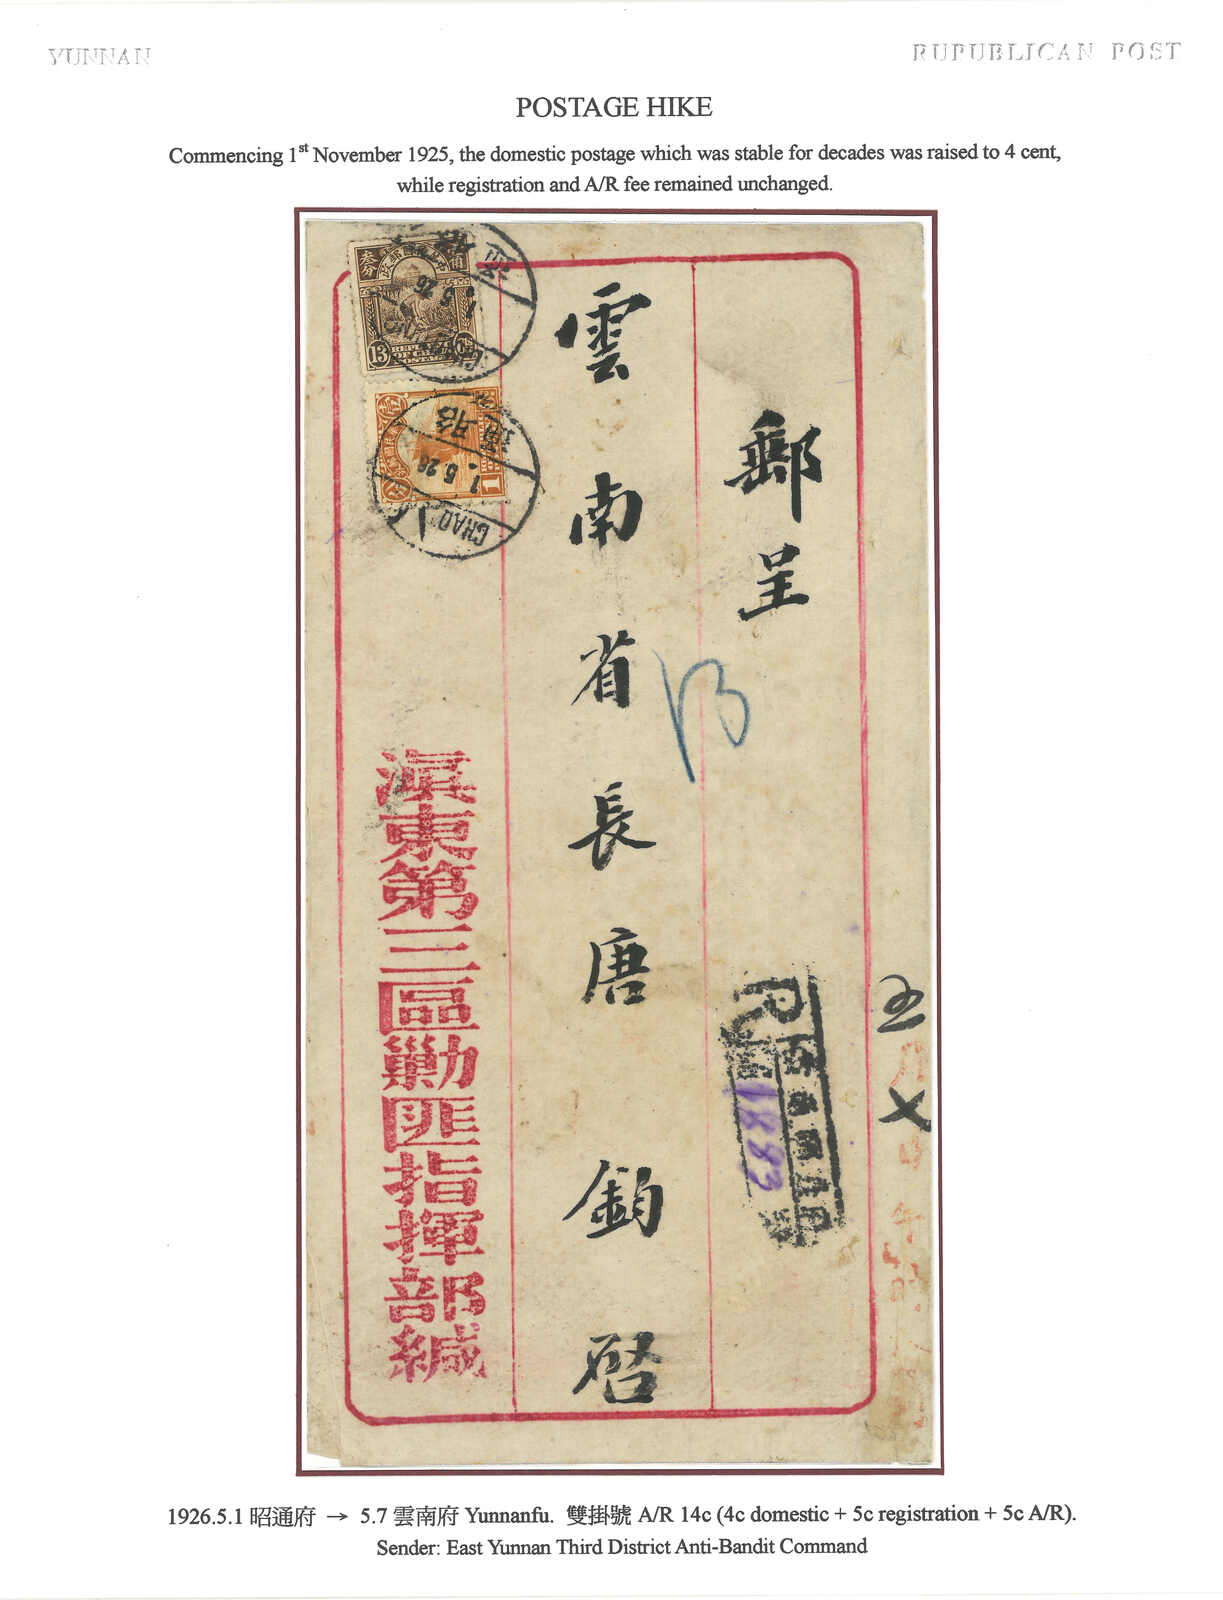 YUNNAN
RUPUBLICAN POST
POSTAGE HIKE
Commencing 1st November 1925, the domestic postage which was stable for decades was raised to 4 cent,
while registration and A/R fee remained unchanged.
郵呈
雲南省長唐鈞啓
滇東第三區勦匪指揮部緘
叁分
13
1
1.5.26
昭通
CHAO
1.5.26
13
R
1883
五 月 七 日
1926.5.1 昭通府 → 5.7 雲南府 Yunnanfu. 雙掛號 A/R 14c (4c domestic + 5c registration + 5c A/R).
Sender: East Yunnan Third District Anti-Bandit Command